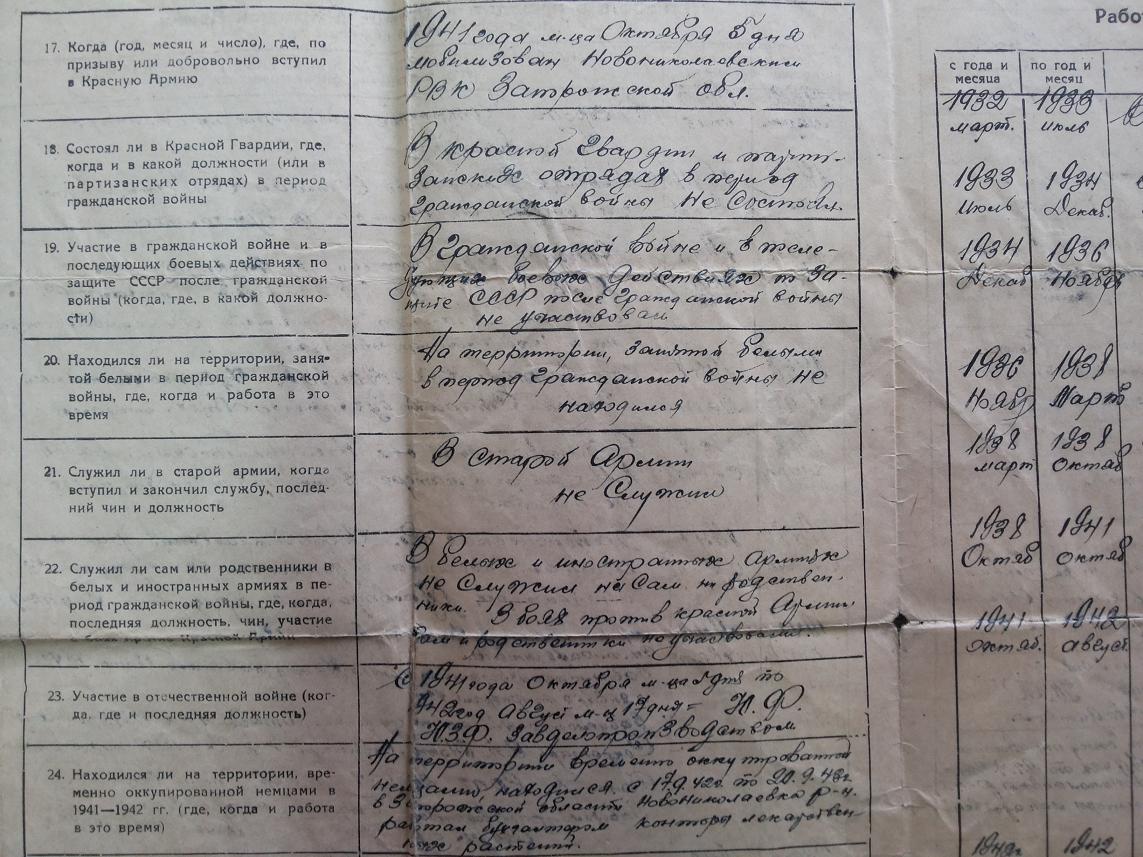 17. Когда (год, месяц и число), где, по
призыву или добровольно вступил
в Красную Армию
1941 года м-ца Октября 5 дня
мобилизован Новониколаевским
РВК Запорожской обл.
18. Состоял ли в Красной Гвардии, где,
когда и в какой должности (или в
партизанских отрядах) в период
гражданской войны
В красной гвардии и парти-
занских отрядах в период
гражданской войны не состоял.
19. Участие в гражданской войне и в
последующих боевых действиях по
защите СССР после гражданской
войны (когда, где, в какой должно-
сти)
В гражданской войне и в после-
дующих боевых действиях по за-
щите СССР после гражданской войны
не участвовал
20. Находился ли на территории, заня-
той белыми в период гражданской
войны, где, когда и работа в это
время
На территории, занятой белыми
в период гражданской войны не
находился
21. Служил ли в старой армии, когда
вступил и закончил службу, послед-
ний чин и должность
В старой Армии
не служил
22. Служил ли сам или родственники в
белых и иностранных армиях в пе-
риод гражданской войны, где, когда,
последняя должность, чин, участие
Красной Армии
В белых и иностранных армиях
не служил ни сам ни родствен-
ники. В боях против красной Армии
сам и родственники не участвовали.
23. Участие в отечественной войне (ког-
да, где и последняя должность)
С 1941 года Октября м-ца 5 дня по
942 год Август м-ц 17 дня = Ю.Ф.
Ю.З.Ф. Завделопроизводством
24. Находился ли на территории, вре-
менно оккупированной немцами в
1941—1942 гг. (где, когда и работа
в это время)
На территории временно оккупированной
немцами находился с 17.9.42г. по 20.9.43г.
в Запорожской области Новониколаевка р-н.
работал бухгалтером конторы лекарствен-
ных растений.
Рабо
с года и месяца
по год и месяц
1932 1933
март. июль
1933 1934
июль Декаб.
1934 1936
Декаб Ноябрь
1936 1938
Ноябр Март
1938 1938
март октяб
1938 1941
Октяб октяб
1941 1942
октяб. август
1942